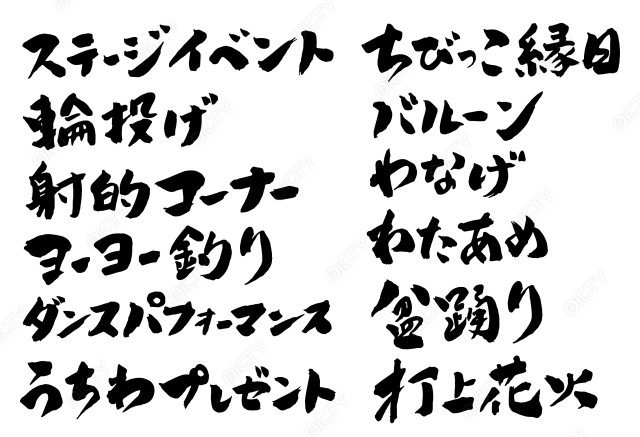 ステージイベント
輪投げ
射的コーナー
ヨーヨー釣り
ダンスパフォーマンス
うちわプレゼント
ちびっこ縁日
バルーン
わなげ
わたあめ
盆踊り
打上花火